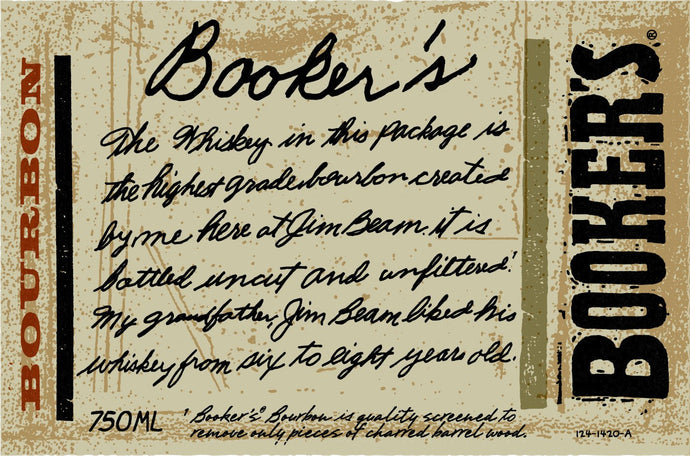 BOURBON
Booker's
The Whiskey in this package is
the highest grade bourbon created
by me here at Jim Beam. it is
bottled uncut and unfiltered¹
My grandfather, Jim Beam liked his
whiskey from six to eight years old.
750ML
¹ Booker's® Bourbon is quality screened to
remove only pieces of charred barrel wood.
BOOKER'S®
124-1420-A